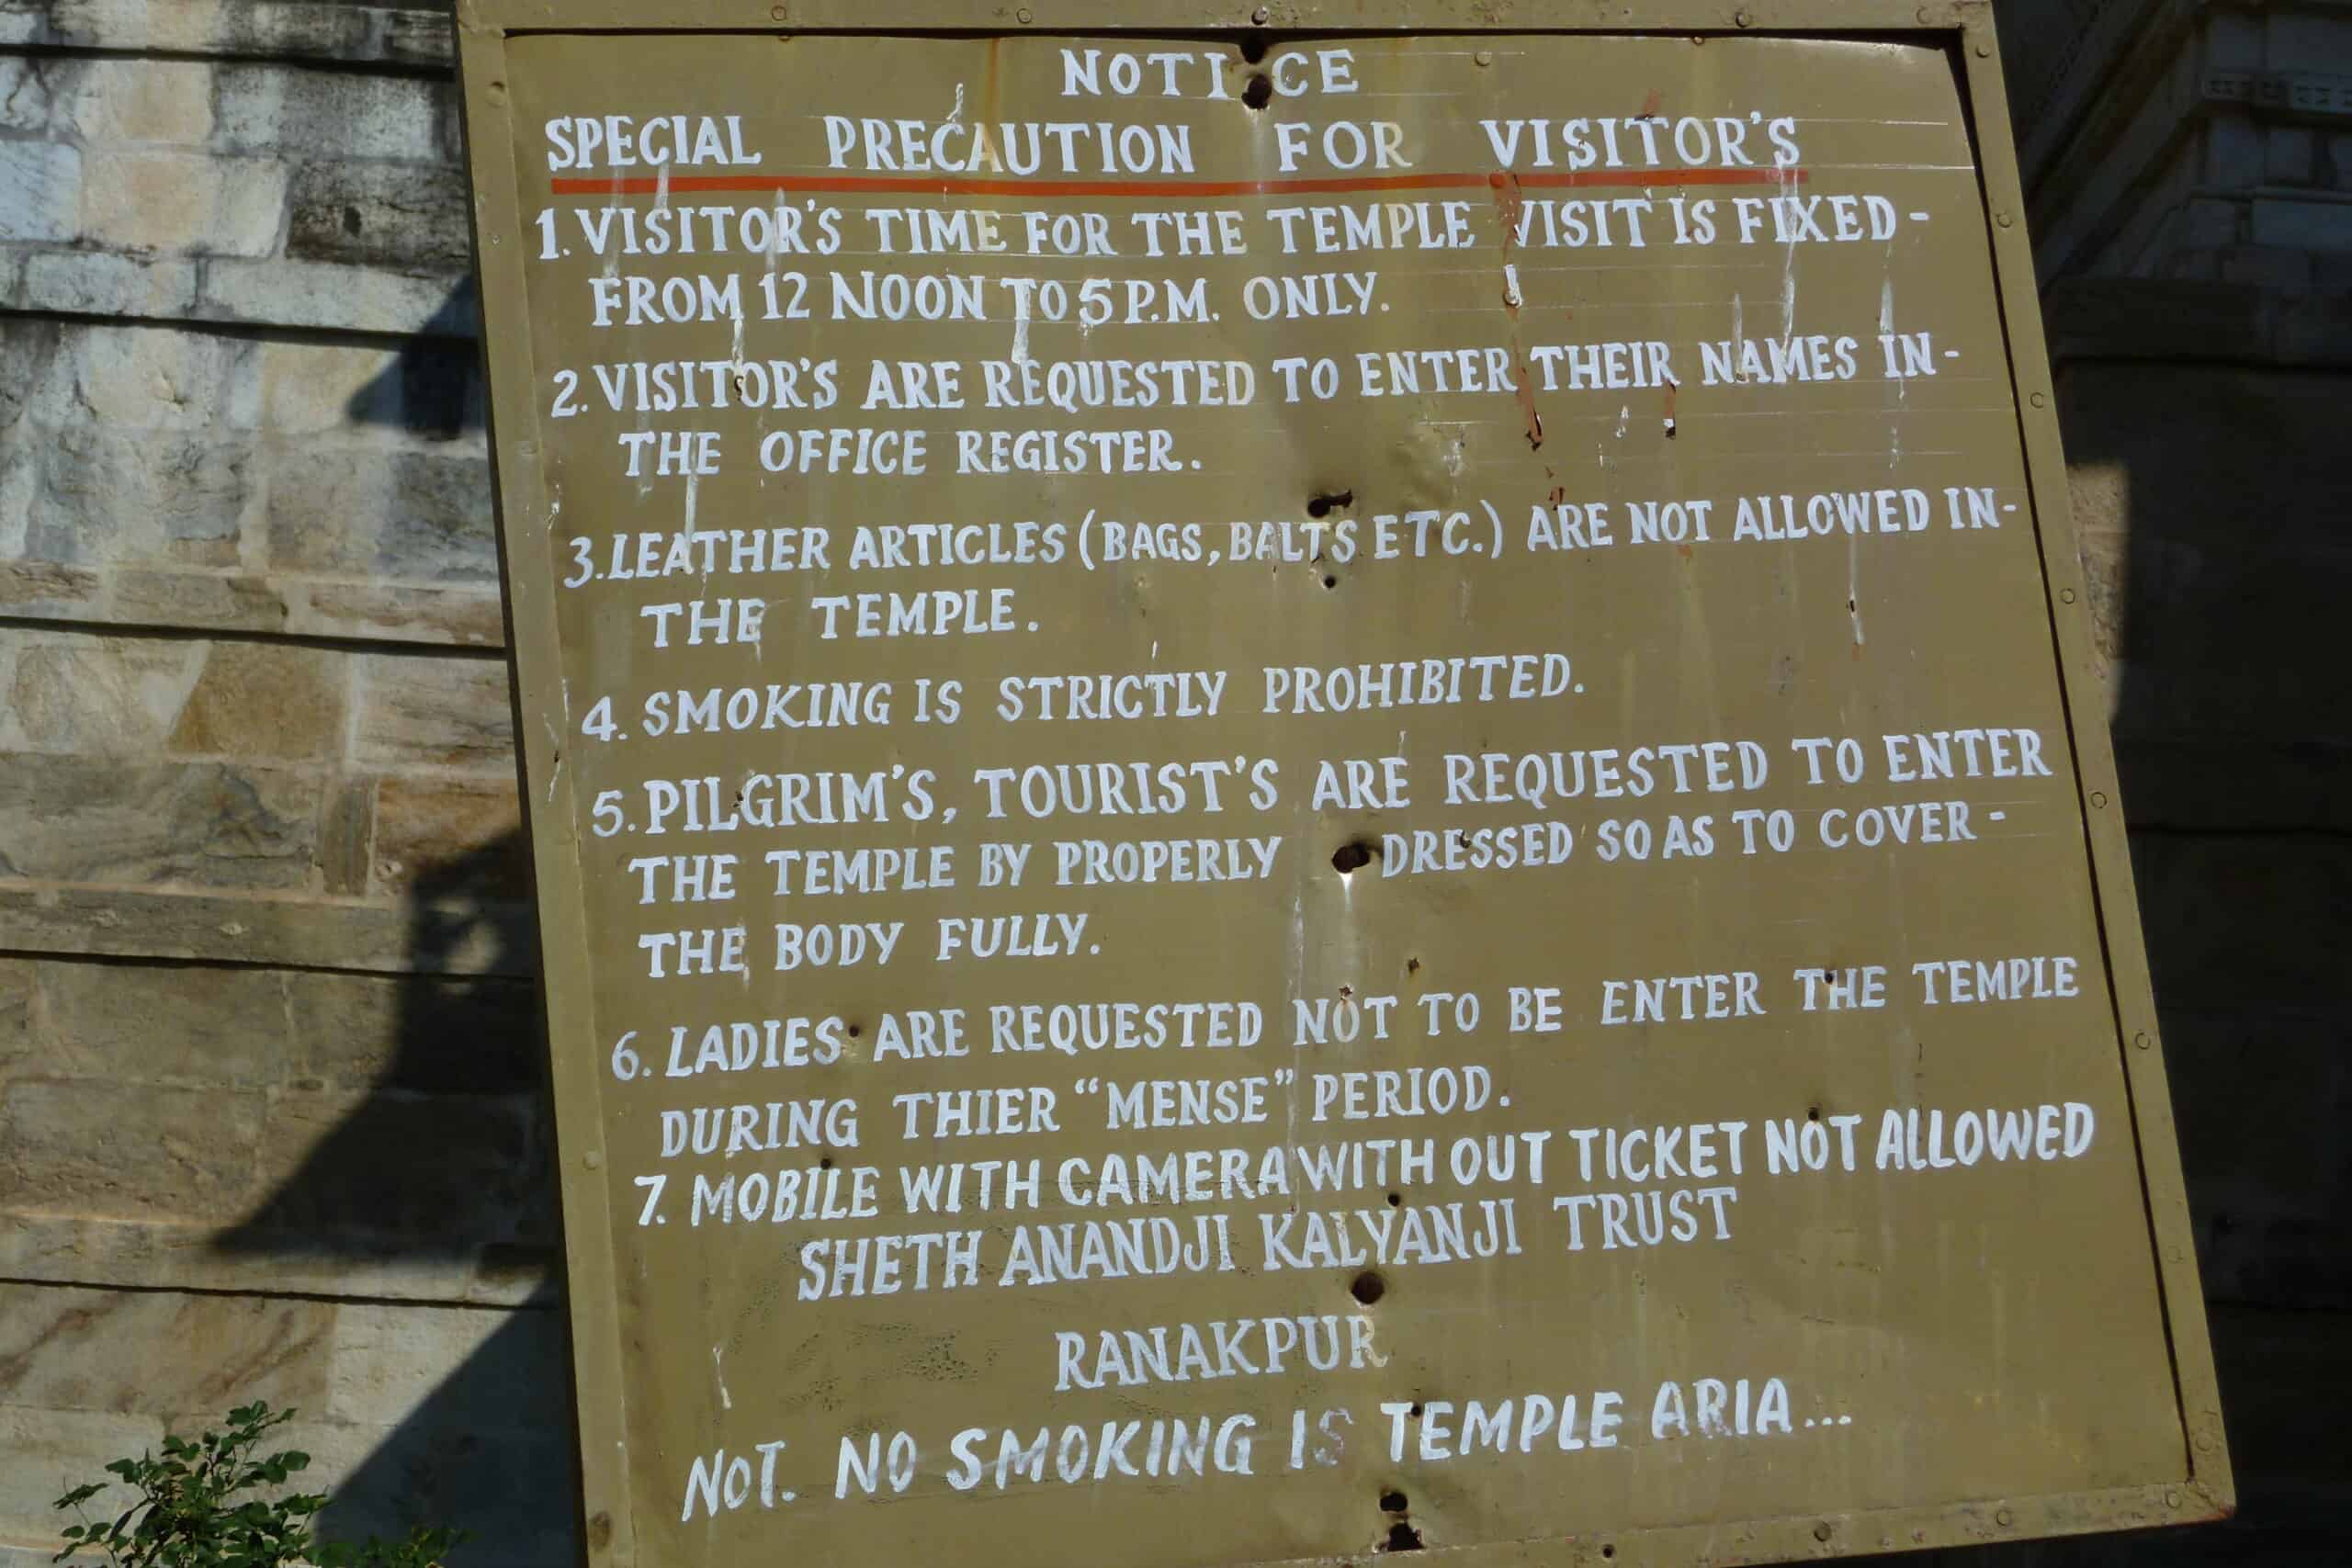 NOTICE
SPECIAL PRECAUTION FOR VISITOR'S
1. VISITOR'S TIME FOR THE TEMPLE VISIT IS FIXED -
FROM 12 NOON TO 5 P.M. ONLY.
2. VISITOR'S ARE REQUESTED TO ENTER THEIR NAMES IN -
THE OFFICE REGISTER.
3. LEATHER ARTICLES (BAGS, BALTS ETC.) ARE NOT ALLOWED IN -
THE TEMPLE.
4. SMOKING IS STRICTLY PROHIBITED.
5. PILGRIM'S, TOURIST'S ARE REQUESTED TO ENTER
THE TEMPLE BY PROPERLY DRESSED SO AS TO COVER -
THE BODY FULLY.
6. LADIES ARE REQUESTED NOT TO BE ENTER THE TEMPLE
DURING THIER "MENSE" PERIOD.
7. MOBILE WITH CAMERA WITH OUT TICKET NOT ALLOWED
SHETH ANANDJI KALYANJI TRUST
RANAKPUR
NOT. NO SMOKING IS TEMPLE ARIA...